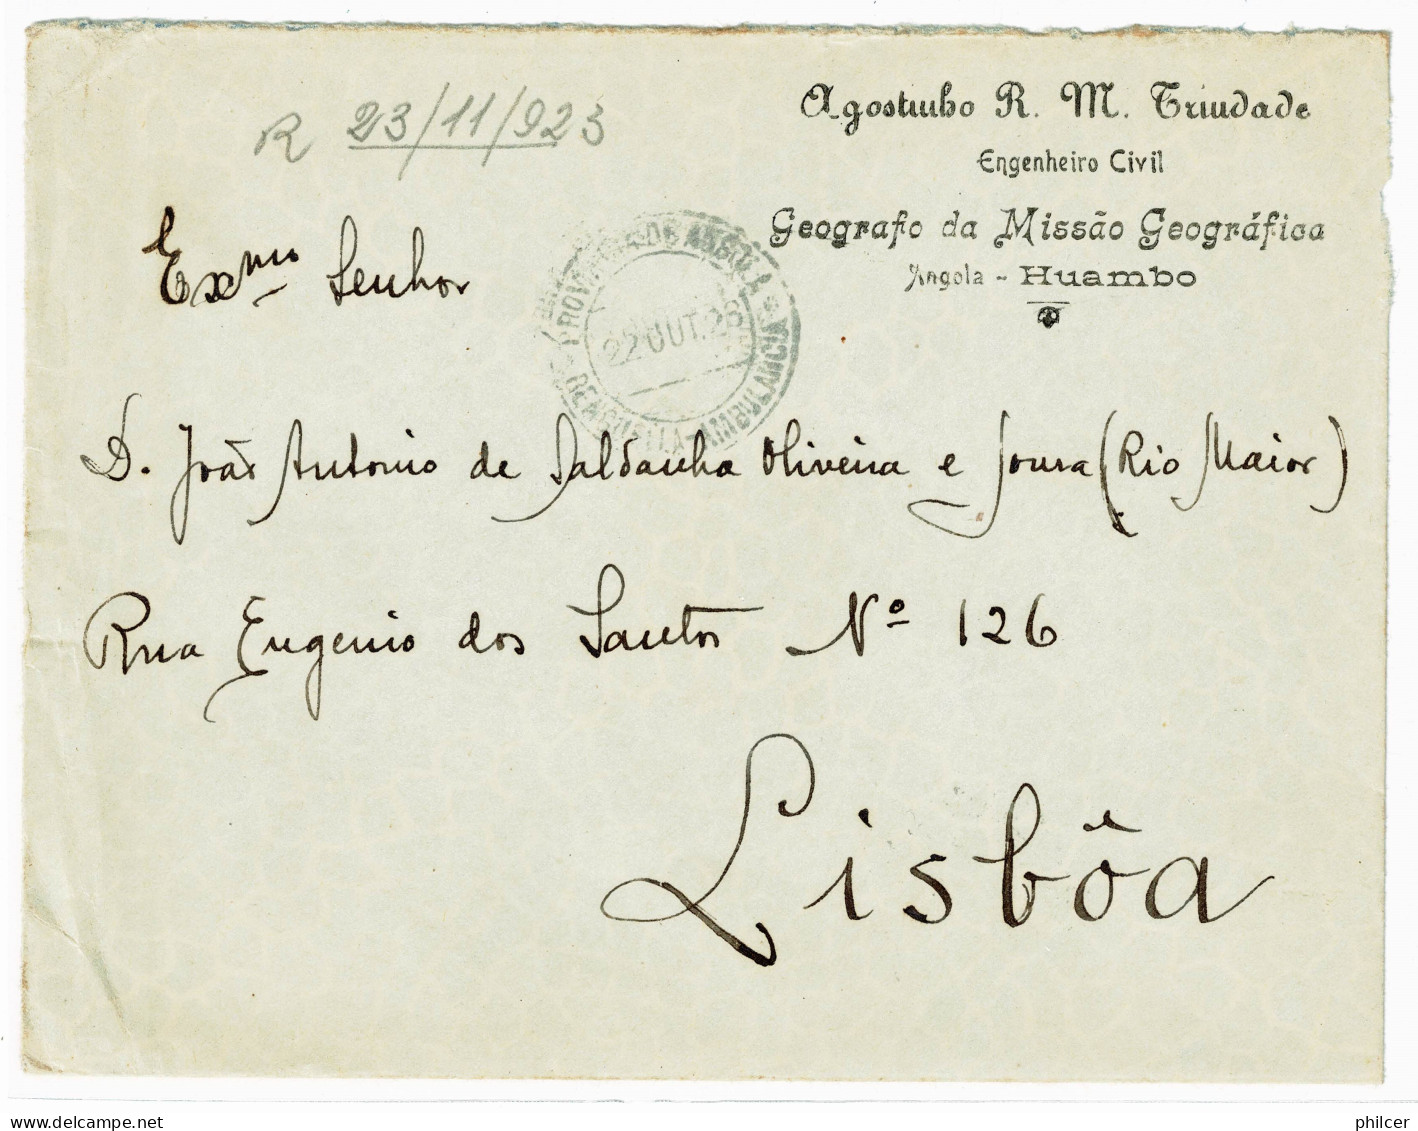 R 23/11/923
Agostinho R. M. Trindade
Engenheiro Civil
Geografo da Missão Geográfica
Angola - Huambo
Exmo Senhor
PROVINCIA DE ANGOLA
22 OUT. 23
BENGUELLA - AMBULANCIA
D. João Antonio de Saldanha Oliveira e Sousa (Rio Maior)
Rua Eugenio dos Santos Nº 126
Lisbôa
delcampe.net
philcer